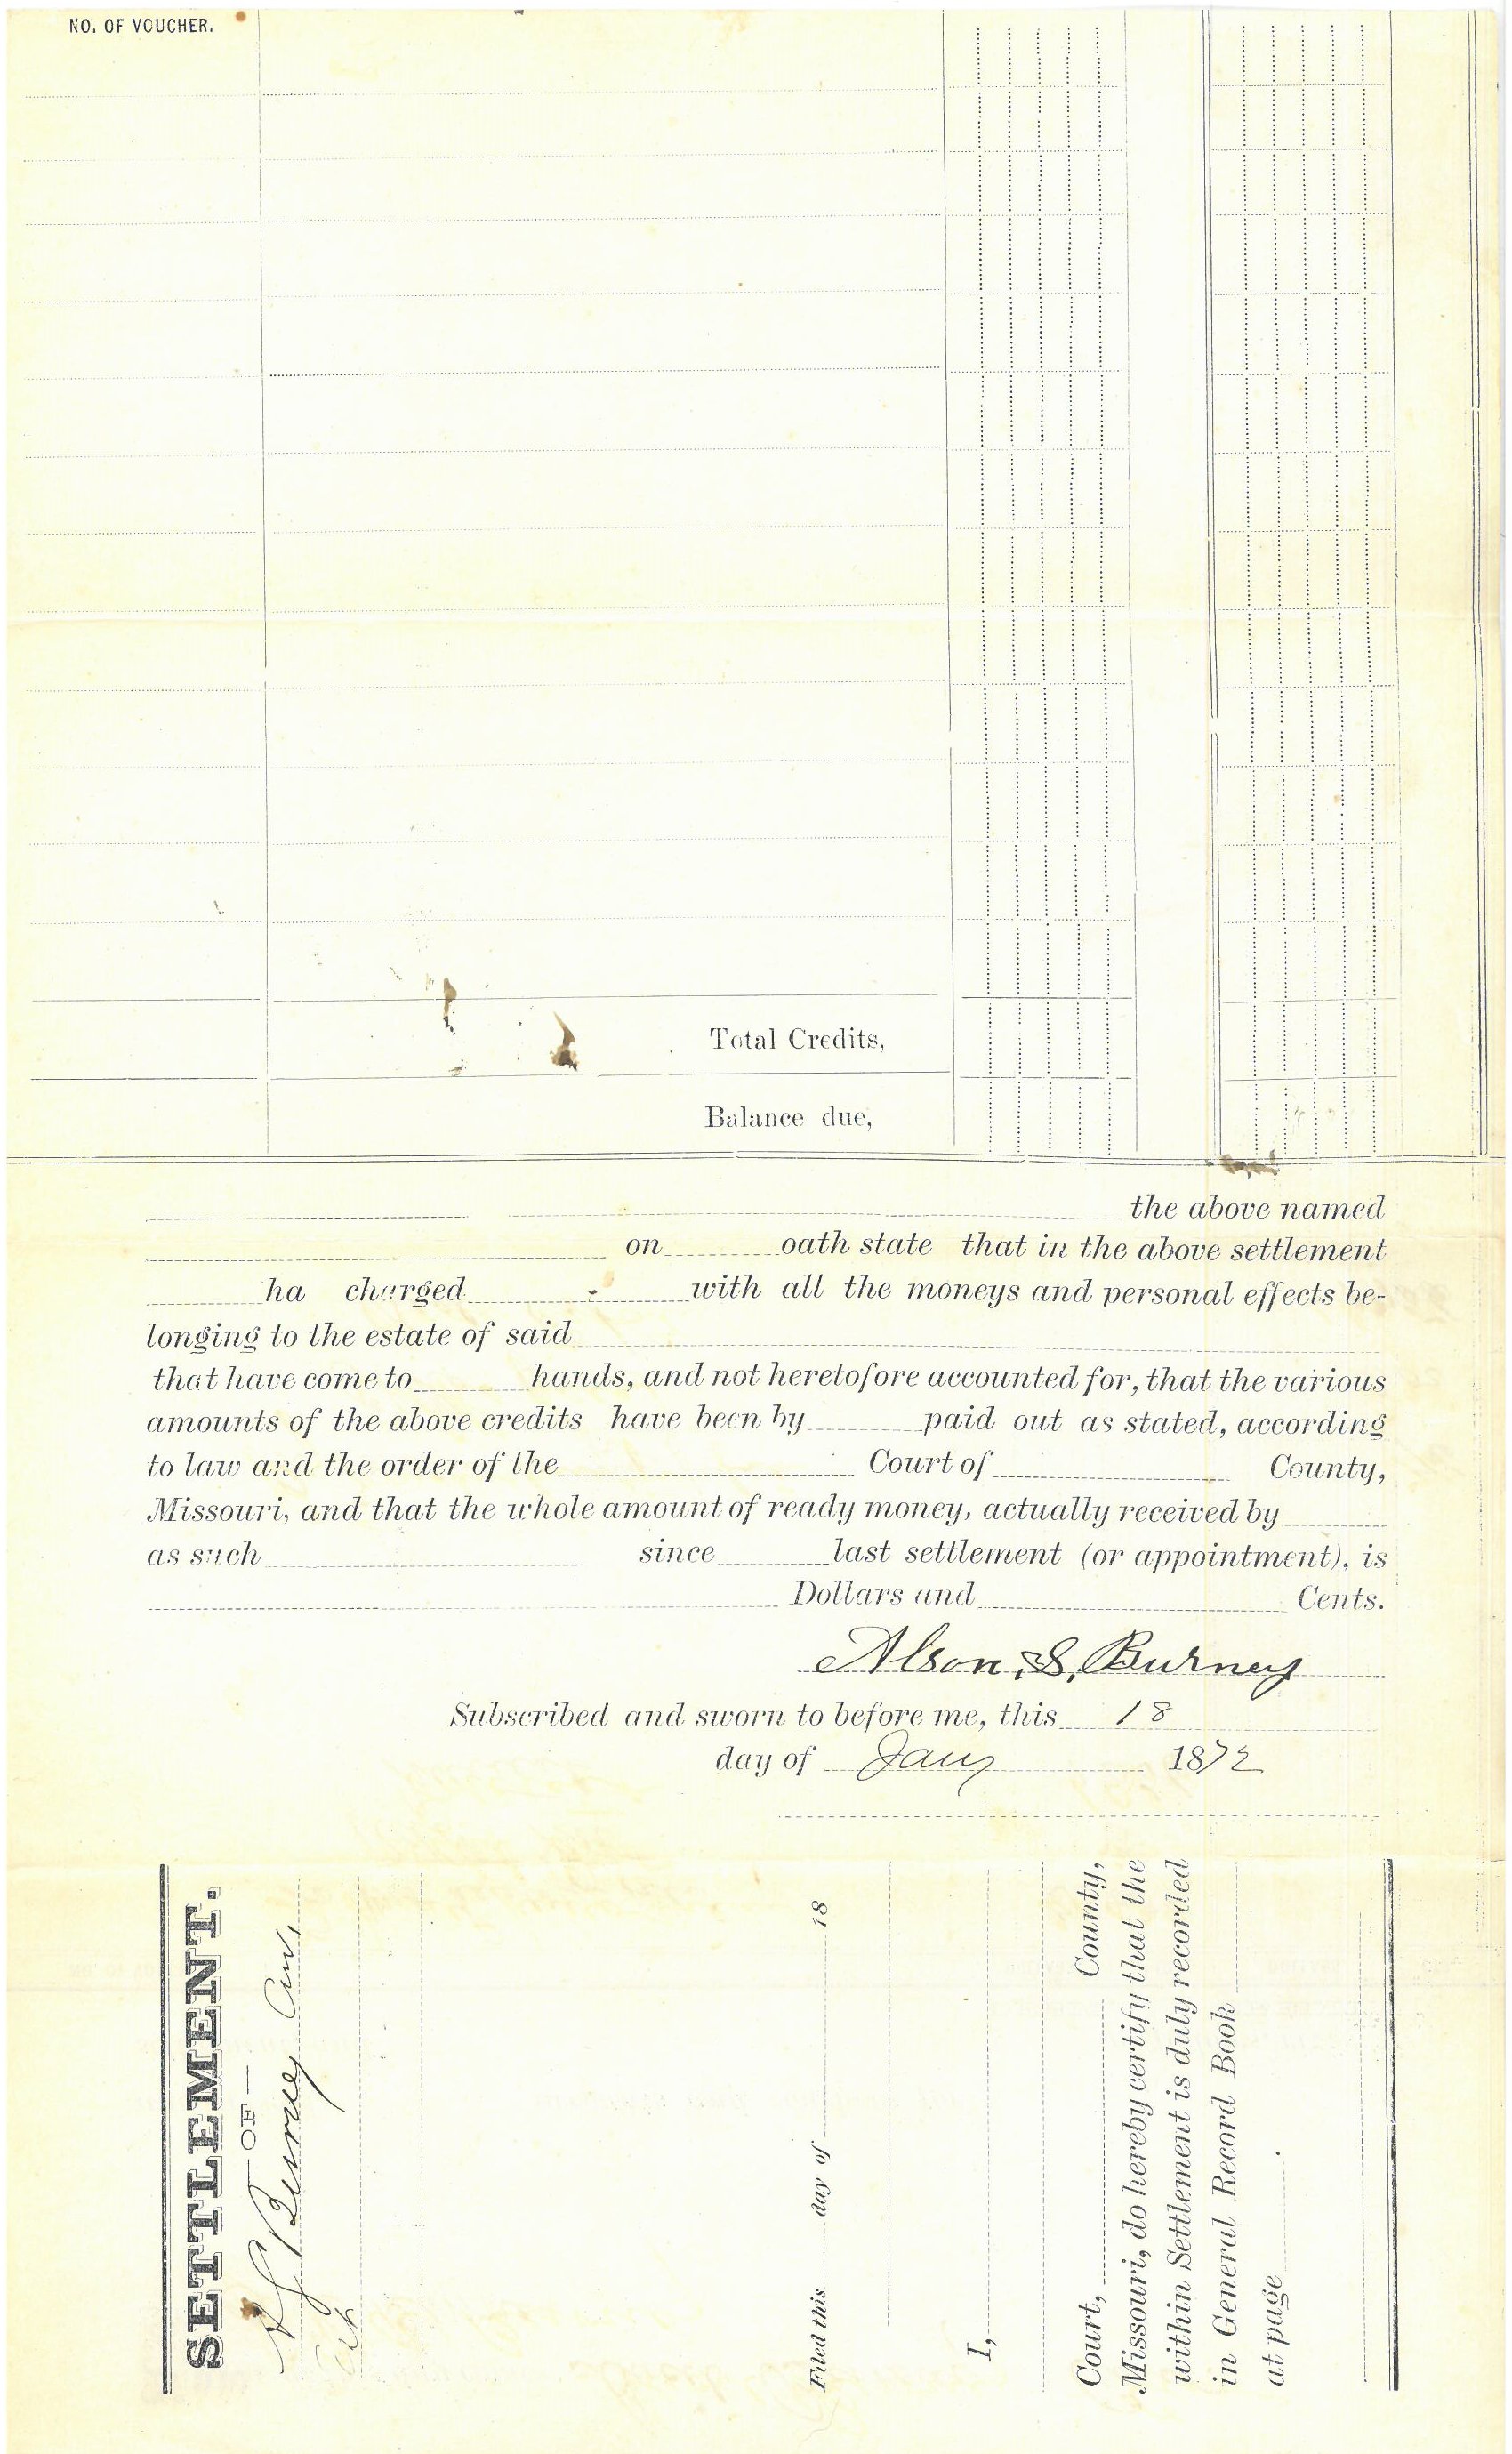 NO. OF VOUCHER.
Total Credits,
Balance due,
the above named
on oath state that in the above settlement
ha charged with all the moneys and personal effects be-
longing to the estate of said
that have come to hands, and not heretofore accounted for, that the various
amounts of the above credits have been by paid out as stated, according
to law and the order of the Court of County,
Missouri, and that the whole amount of ready money, actually received by
as such since last settlement (or appointment), is
Dollars and Cents.
Alson, S, Burney
Subscribed and sworn to before me, this 18
day of Jany 1872
SETTLEMENT.
—OF—
A S Burney
Filed this day of 18
I,
Court, County,
Missouri, do hereby certify that the
within Settlement is duly recorded
in General Record Book
at page .